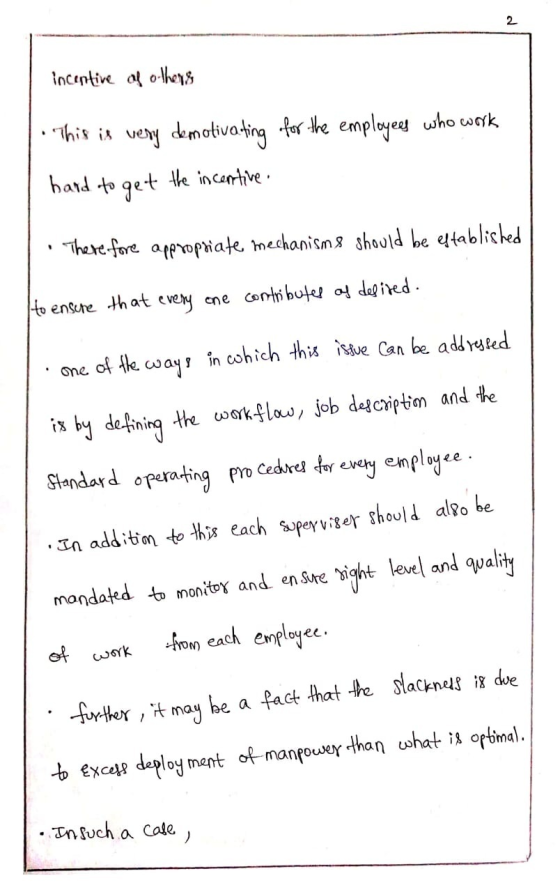 2
incentive of others
• This is very demotivating for the employees who work
hard to get the incentive.
• Therefore appropriate mechanisms should be established
to ensure that every one contributes as desired.
• one of the ways in which this issue Can be addressed
is by defining the workflow, job description and the
Standard operating procedures for every employee.
• In addition to this each superviser should also be
mandated to monitor and ensure right level and quality
of work from each employee.
• further, it may be a fact that the slackness is due
to excess deployment of manpower than what is optimal.
• In such a case,